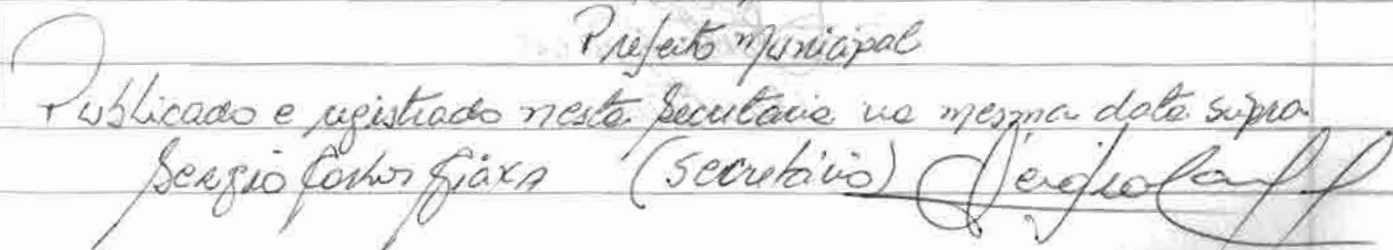 Prefeito Municipal
Publicado e registrado nesta Secretaria na mesma data supra
Sergio Carlos (secretário)